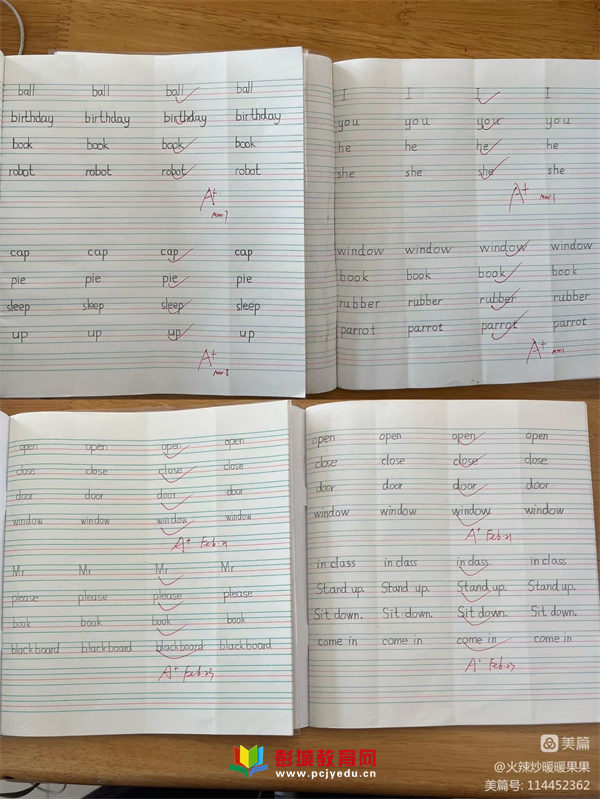 ball ball ball ball
birthday birthday birthday birthday
book book book book
robot robot robot robot
A+
Mar.7
cap cap cap cap
pie pie pie pie
sleep sleep sleep sleep
up up up up
A+
Mar.8
I I I I
you you you you
he he he he
she she she she
A+
Mar.1
window window window window
book book book book
rubber rubber rubber rubber
parrot parrot parrot parrot
A+
open open open open
close close close close
door door door door
window window window window
A+ Feb.21
Mr Mr Mr Mr
please please please please
book book book book
blackboard blackboard blackboard blackboard
A+ Feb.23
open open open open
close close close close
door door door door
window window window window
A+ Feb.21
in class in class in class in class
Stand up. Stand up. Stand up. Stand up.
Sit down. Sit down. Sit down. Sit down.
come in come in come in come in
A+ Feb.23
彭城教育网
www.pcjyedu.cn
美篇
@火辣炒暖暖果果
美篇号: 114452362